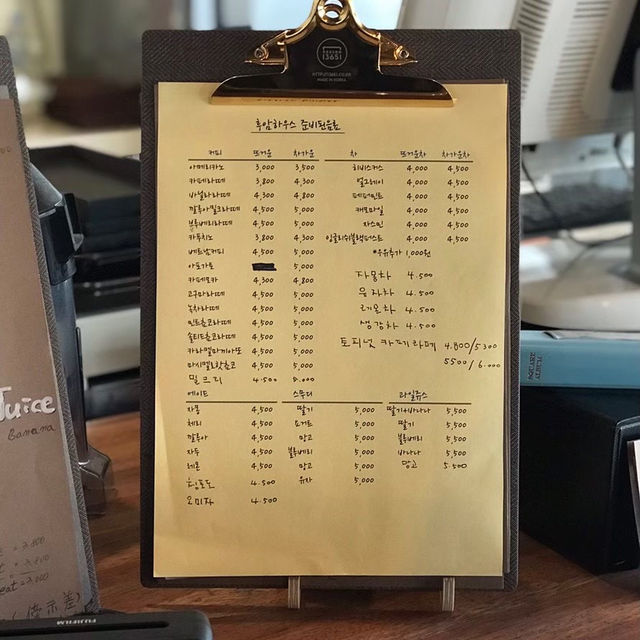 후암하우스 준비된음료
커피 뜨거운 차가운
아메리카노 3,000 3,500
카페라떼 3,800 4,300
바닐라라떼 4,300 4,800
깔루아밀크라떼 4,500 5,000
블루베리라떼 4,500 5,000
카푸치노 3,800 4,300
베트남커피 4,500 5,000
아포가토 5,000
카페모카 4,300 4,800
고구마라떼 4,500 5,000
녹차라떼 4,500 5,000
민트초코라떼 4,500 5,000
솔티드초코라떼 4,500 5,000
카라멜마끼아또 4,500 5,000
마시멜로핫초코 4,500 5,000
밀크티 4.500 5.000
차 뜨거운차 차가운차
히비스커스 4,000 4,500
얼그레이 4,000 4,500
페퍼민트 4,000 4,500
캐모마일 4,000 4,500
자스민 4,000 4,500
잉글리쉬블랙퍼스트 4,000 4,500
*우유추가 1,000원
자몽차 4.500
유자차 4.500
레몬차 4.500
생강차 4.500
토피넛 카페라떼 4.800/5300
5500/6.000
에이드
자몽 4,500
체리 4,500
깔루아 4,500
자두 4,500
레몬 4,500
청포도 4.500
오미자 4.500
스무디
딸기 5,000
요거트 5,000
망고 5,000
블루베리 5,000
망고 5,000
유자 5,000
과일쥬스
딸기+바나나 5,500
딸기 5,500
블루베리 5,500
바나나 5,500
망고 5.500
Juice
Banana
FUJIFILM